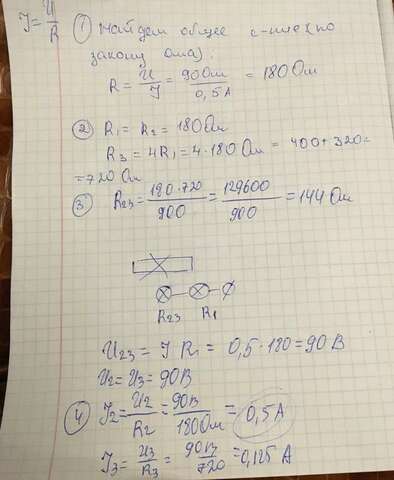 I = U/R
① Найдем общее с-ние (по
закону Ома):
R = U/I = 90Ом/0,5А = 180 Ом
② R₁ = R₂ = 180 Ом
R₃ = 4R₁ = 4·180 Ом = 400+320=
=720 Ом
③ R₂₃ = 180·720/900 = 129600/900 = 144 Ом
R₂₃ R₁
U₂₃ = I R₁ = 0,5·180 = 90 В
U₂ = U₃ = 90В
④ I₂ = U₂/R₂ = 90В/180Ом = 0,5 А
I₃ = U₃/R₃ = 90В/720 = 0,125 А